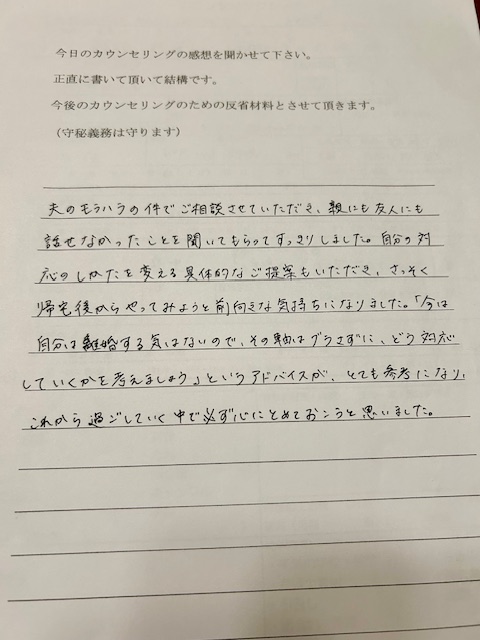 今日のカウンセリングの感想を聞かせて下さい。
正直に書いて頂いて結構です。
今後のカウンセリングのための反省材料とさせて頂きます。
（守秘義務は守ります）
夫のモラハラの件でご相談させていただき、親にも友人にも
話せなかったことを聞いてもらってすっきりしました。自分の対
応のしかたを変える具体的なご提案もいただき、さっそく
帰宅後からやってみようと前向きな気持ちになりました。「今は
自分は離婚する気はないので、その軸はブラさずに、どう対応
していくかを考えましょう」というアドバイスが、とても参考になり、
これから過ごしていく中で必ず心にとめておこうと思いました。